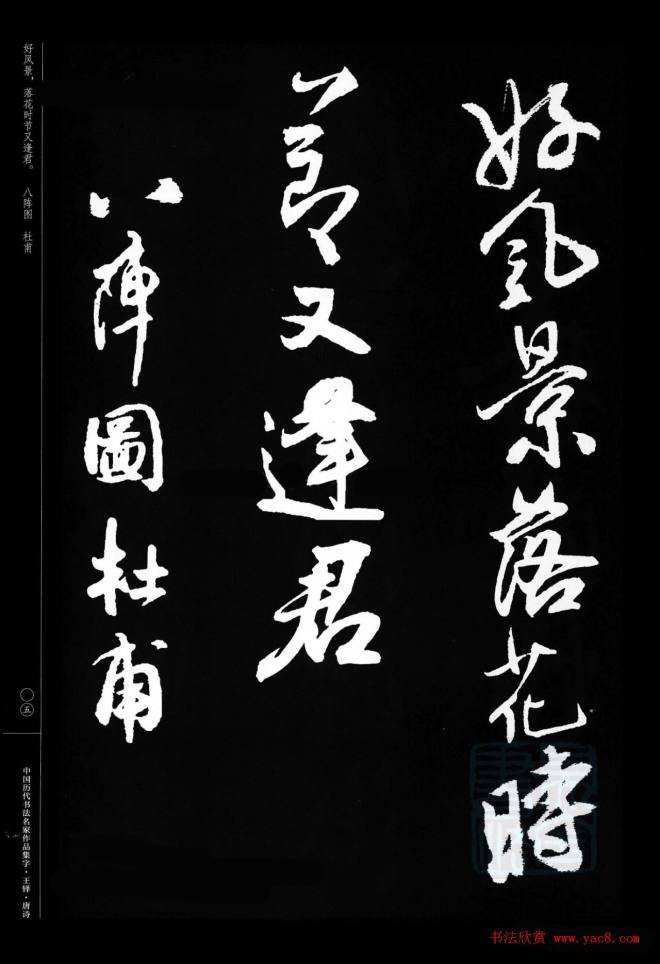 好風景落花時
節又逢君
八陣圖杜甫
好风景，落花时节又逢君。 八阵图 杜甫
〇五
中国历代书法名家作品集字·王铎·唐诗
书法欣赏 www.yac8.com